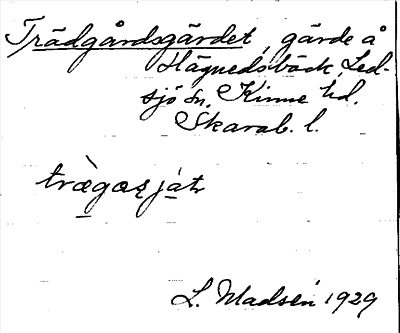 Trädgårdsgärdet, gärde å
Hägnedsbäck, Led-
sjö sn. Kinne hd.
Skarab. l.
L. Madsén 1929